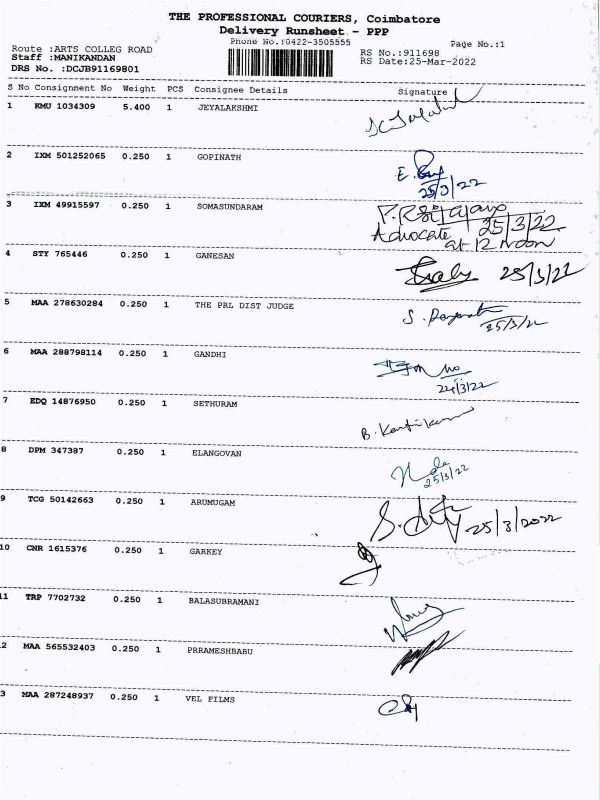 THE PROFESSIONAL COURIERS, Coimbatore
Delivery Runsheet - PPP
Phone No.:0422-3505555
Page No.:1
Route :ARTS COLLEG ROAD
RS No.:911698
Staff :MANIKANDAN
RS Date:25-Mar-2022
DRS No. :DCJB91169801
S No Consignment No Weight PCS Consignee Details Signature
1 KMU 1034309 5.400 1 JEYALAKSHMI
2 IXM 501252065 0.250 1 GOPINATH
25/3/22
3 IXM 49915597 0.250 1 SOMASUNDARAM
25/3/22
Advocate at 12 noon
4 STY 765446 0.250 1 GANESAN
25/3/22
5 MAA 278630284 0.250 1 THE PRL DIST JUDGE
25/3/22
6 MAA 288798114 0.250 1 GANDHI
7 EDQ 14876950 0.250 1 SETHURAM
8 DPM 347387 0.250 1 ELANGOVAN
25/3/22
9 TCG 50142663 0.250 1 ARUMUGAM
25/3/2022
10 CNR 1615376 0.250 1 GARKEY
11 TRP 7702732 0.250 1 BALASUBRAMANI
2 MAA 565532403 0.250 1 PRRAMESHBABU
3 MAA 287248937 0.250 1 VEL FILMS